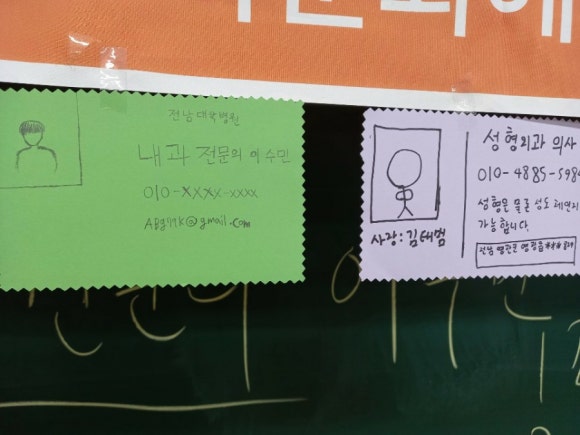 전남대학병원
내과 전문의 이수민
010-XXXX-xxxx
@gmail.com
성형외과 의사
010-4885-598
성형은 물론 성도
가능합니다.
사장: 김태범
전남 영광군 영광읍 ***
전문의 이수민